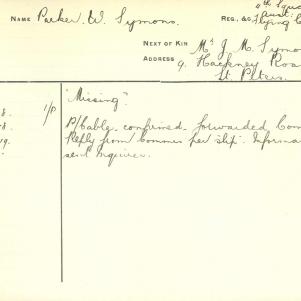 4th Squa
NAME Parker. W. Symons. REG., &C. Aust:
Flying C
NEXT OF KIN Mr J. M. Symo
ADDRESS 9. Hackney Roa
St. Peters.
1/P "Missing".
P/Cable confirmed forwarded Com
Reply from Commis per slip. Informa
sent Inquirer.